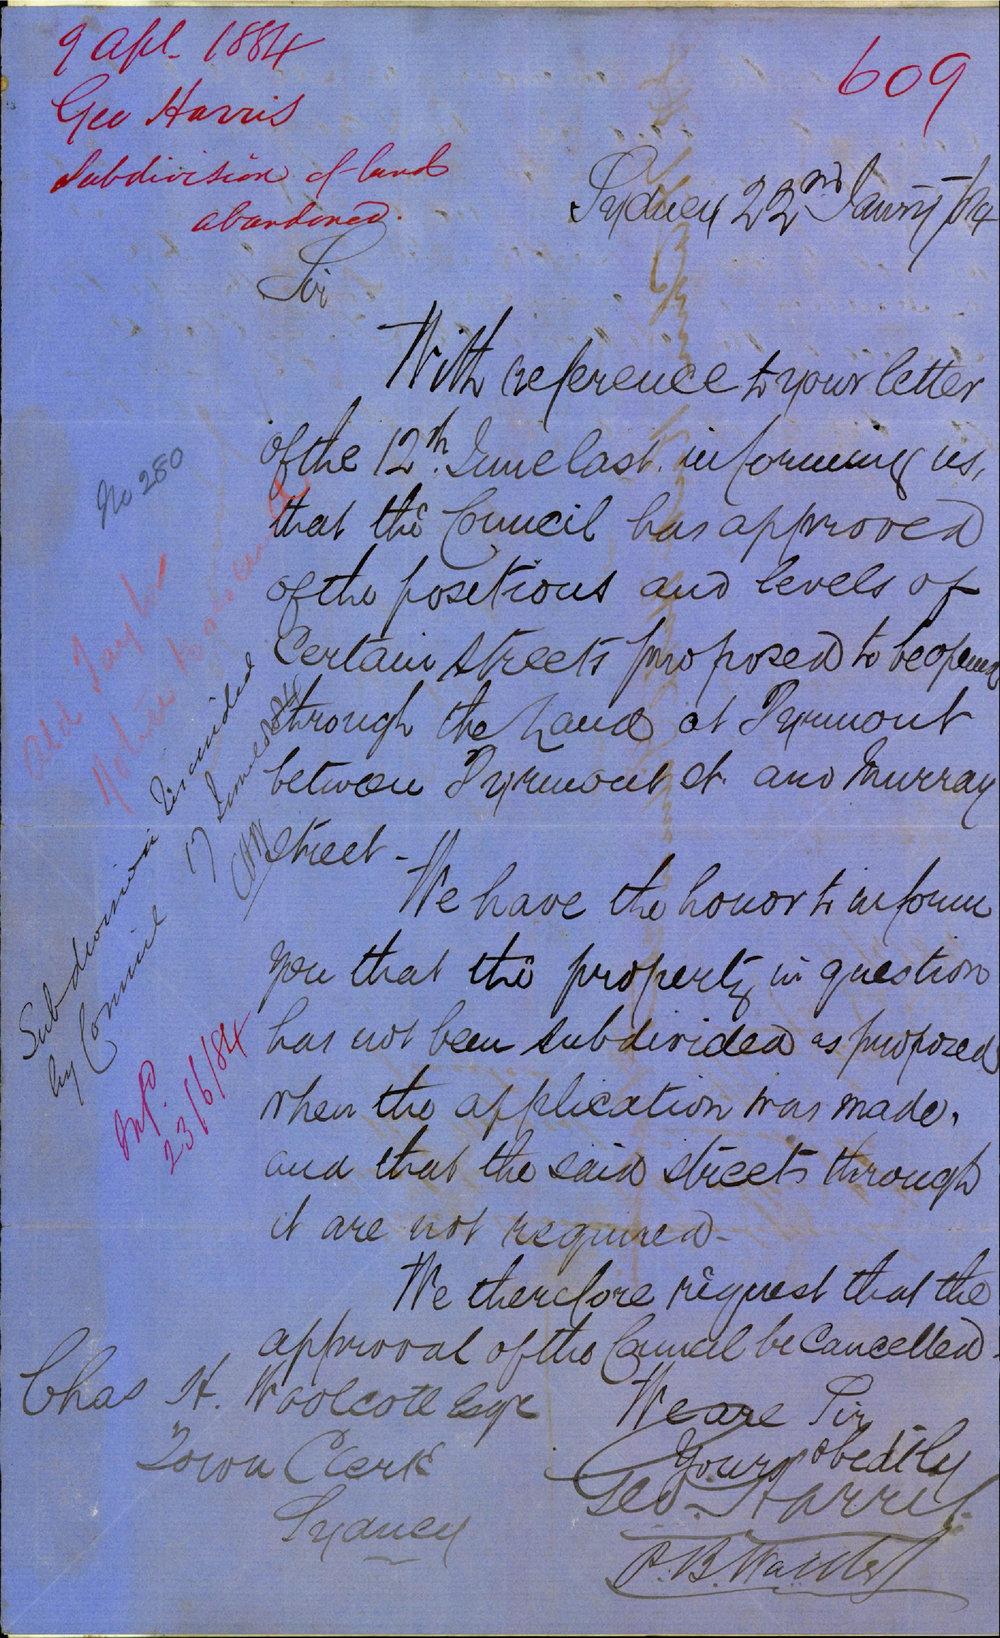 9 Apl 1884
Geo Harris
Subdivision of land
abandoned.
609
Sydney 22nd Janry /84
Sir
With reference to your letter
of the 12th. June last. informing us,
that the Council has approved
of the positions and levels of
Certain streets proposed to be opened
through the Land at Pyrmont
between Pyrmont st. and Murray
street -
We have the honor to inform
you that the property in question
has not been subdivided as proposed
when the application was made,
and that the said streets through
it are not required -
We therefore request that the
approval of the Council be Cancelled -
We are Sir
Yours obedtly
Geo. Harris.
Chas H. Woolcott Esqre
Town Clerk
Sydney
No 280
Ald Taylor
Subdivision rescinded
by Council 17 June 84
23/6/84